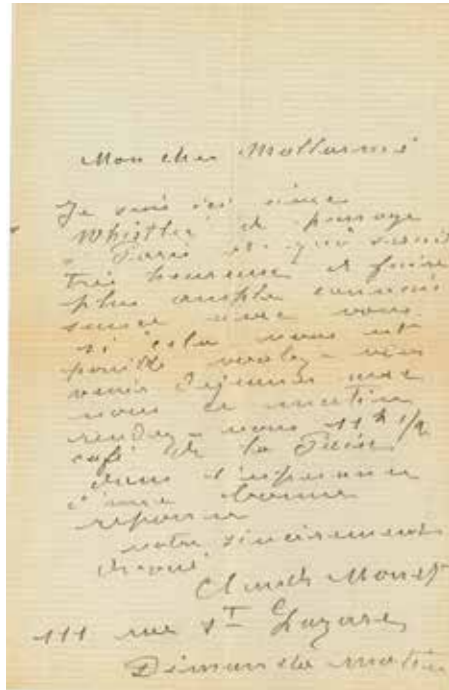 Mon cher Mallarmé
Je suis ici avec
Whistler de passage
à Paris et qui serait
très heureux de faire
plus ample connais
sance avec vous.
si cela vous est
possible voulez-vous
venir déjeuner avec
nous ce matin
rendez-vous 11h 1/2
café de la Paix
dans l'espérance
d'une bonne
réponse
votre sincèrement
dévoué
Claude Monet
111 rue St Lazare
Dimanche matin